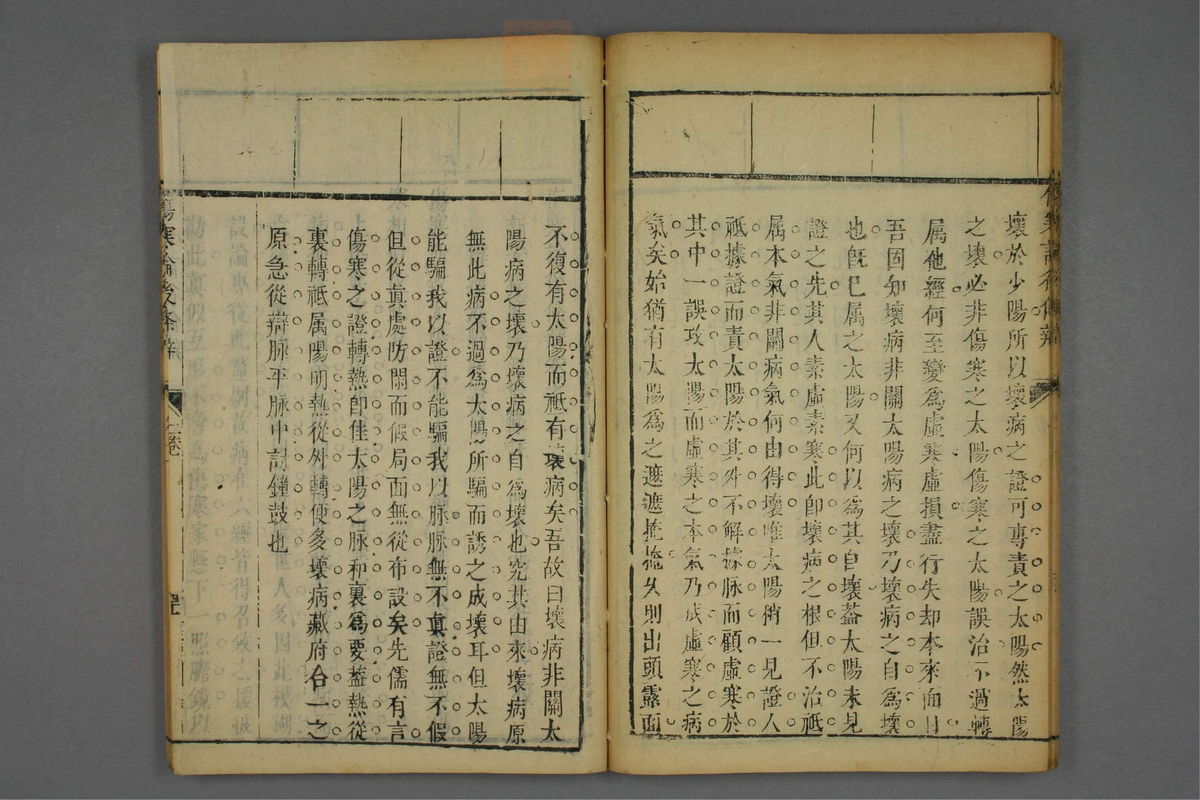 壞於少陽所以壞病之證可專責之太陽然太陽
之壞必非傷寒之太陽傷寒之太陽誤治不過轉
属他經何至變爲虛寒虛損盡行失却本來面目
吾固知壞病非關太陽病之壞乃壞病之自爲壞
也旣已属之太陽又何以爲其自壞蓋太陽未見
證之先其人素虛素寒此卽壞病之根但不治祗
属本氣非關病氣何由得壞唯太陽稍一見證人
祗據證而責太陽於其外不解據脉而顧虛寒於
其中一誤攻太陽而虛寒之本氣乃成虛寒之病
氣矣始猶有太陽爲之遮遮掩掩久則出頭露面
不復有太陽而祗有壞病矣吾故曰壞病非關太
陽病之壞乃壞病之自爲壞也究其由來壞病原
無此病不過爲太陽所騙而誘之成壞耳但太陽
能騙我以證不能騙我以脉脉無不真證無不假
但從真處防閑而假局面無從布設矣先儒有言
傷寒之證轉熱卽佳太陽之脉和裏爲要蓋熱從
裏轉祗属陽明熱從外轉便多壞病藏府合一之
原急從辯脉平脉中討鐘鼓也
傷寒論後條辯